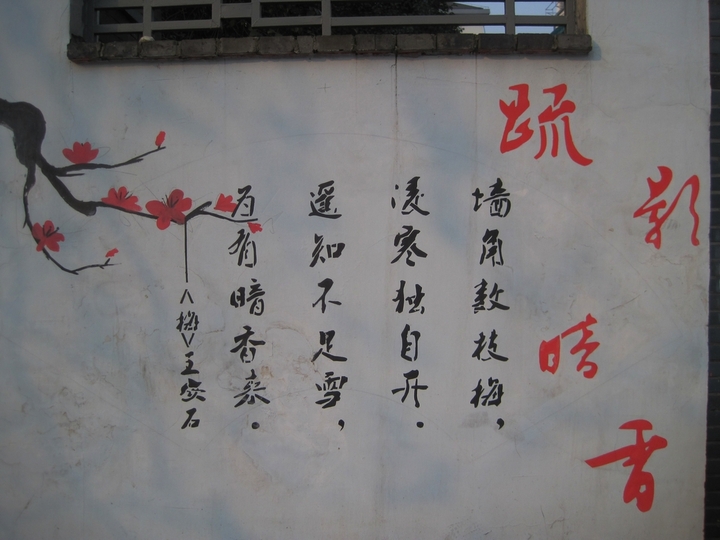 疏影暗香
墙角数枝梅，
凌寒独自开。
遥知不足雪，
为有暗香来。
<梅>王安石